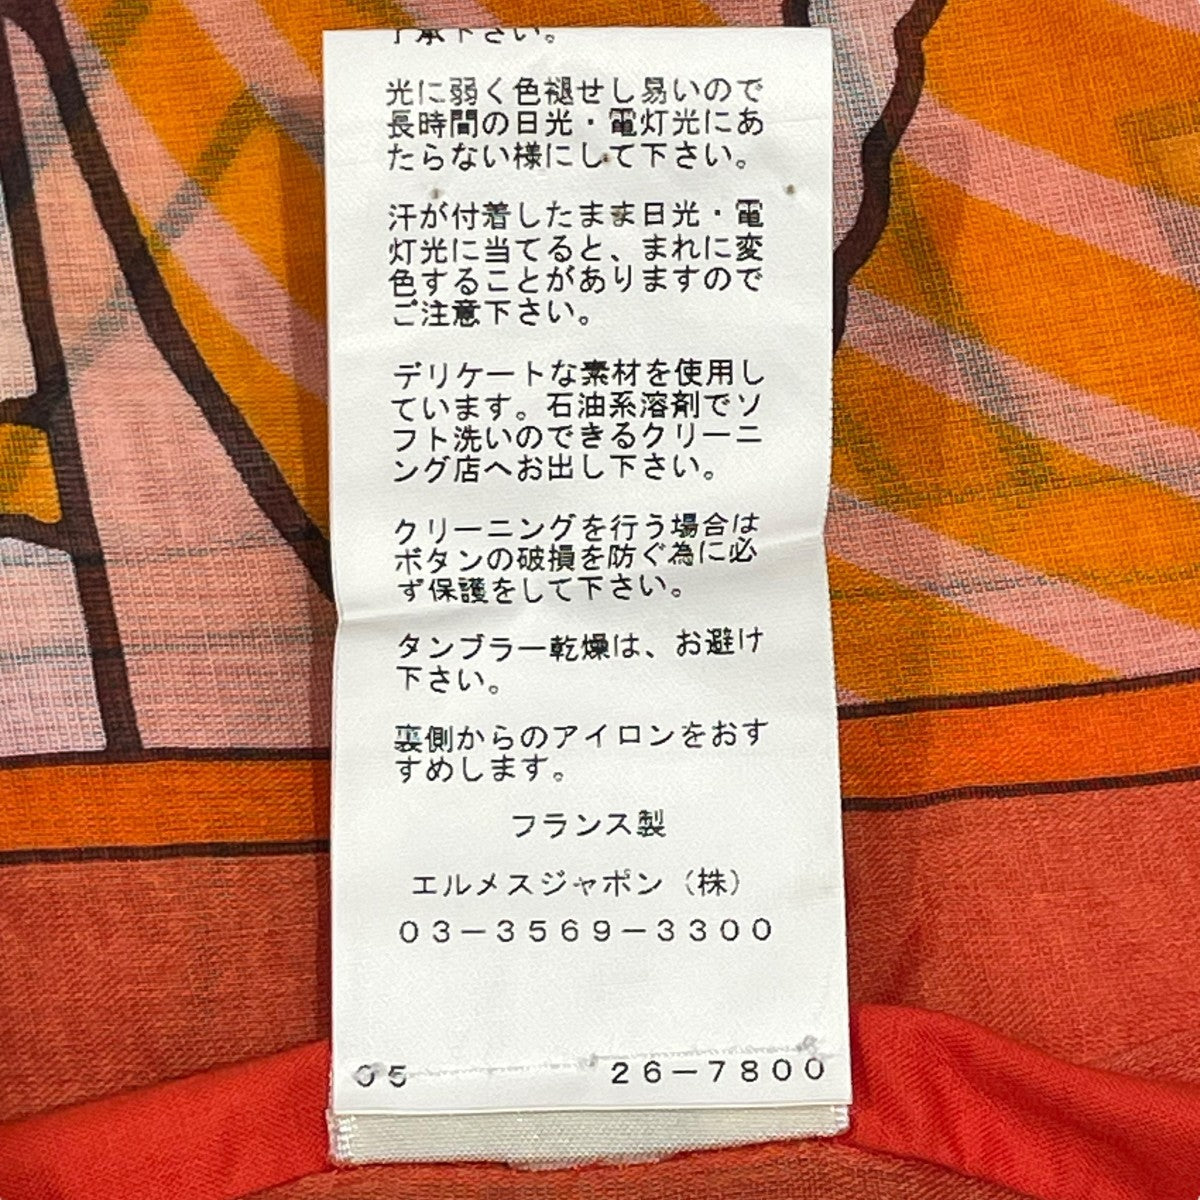 了承下さい。
光に弱く色褪せし易いので
長時間の日光・電灯光にあ
たらない様にして下さい。
汗が付着したまま日光・電
灯光に当てると、まれに変
色することがありますので
ご注意下さい。
デリケートな素材を使用し
ています。石油系溶剤でソ
フト洗いのできるクリーニ
ング店へお出し下さい。
クリーニングを行う場合は
ボタンの破損を防ぐ為に必
ず保護をして下さい。
タンブラー乾燥は、お避け
下さい。
裏側からのアイロンをおす
すめします。
フランス製
エルメスジャポン（株）
０３－３５６９－３３００
０５　２６－７８００